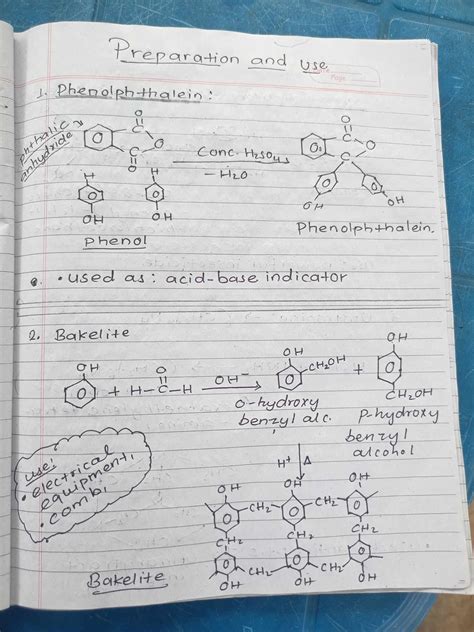 Preparation and use
Page
1. Phenolphthalein :
phthalic
anhydride
O
C
O
C
O
Conc. H₂SO₄
- H₂O
H
H
OH
OH
Phenol
O
C
O
C
OH
OH
Phenolphthalein
• used as : acid-base indicator
2. Bakelite
OH
+ H-C-H
O
OH⁻
OH
CH₂OH
+
OH
CH₂OH
o-hydroxy
benzyl alc.
p-hydroxy
benzyl
alcohol
H⁺ Δ
use:
• electrical
equipment,
• comb,
OH
OH
OH
CH₂
CH₂
CH₂
CH₂
CH₂
CH₂
OH
OH
OH
Bakelite